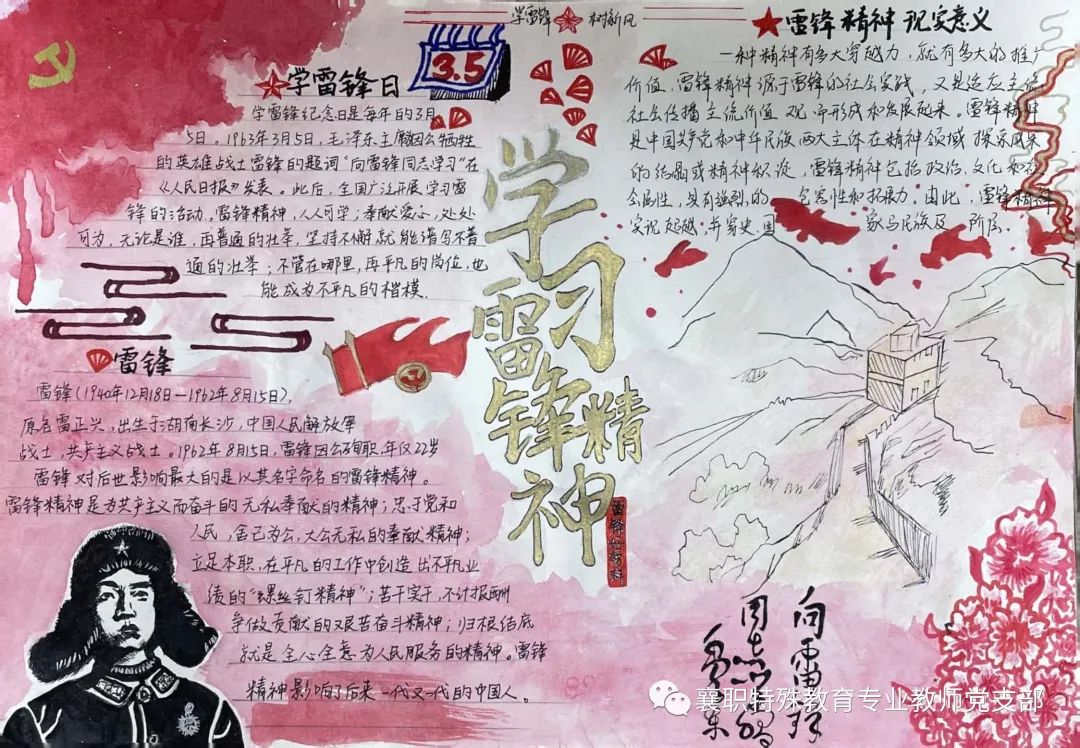 学雷锋 树新风
3.5
学雷锋日
学雷锋纪念日是每年的3月
5日。1963年3月5日,毛泽东主席因公牺牲
的英雄战士雷锋的题词“向雷锋同志学习”在
《人民日报》发表。此后,全国广泛开展学习雷
锋的活动,雷锋精神,人人可学;奉献爱心,处处
可为,无论是谁,再普通的壮举,坚持不懈就能谱写不普
通的壮举;不管在哪里,再平凡的岗位,也
能成为不平凡的楷模.
雷锋
雷锋(1940年12月18日—1962年8月15日),
原名雷正兴,出生于湖南长沙,中国人民解放军
战士,共产主义战士。1962年8月15日,雷锋因公殉职,年仅22岁
雷锋对后世影响最大的是以其名字命名的雷锋精神。
雷锋精神是为共产主义而奋斗的无私奉献的精神;忠于党和
人民,舍己为公,大公无私的奉献精神;
立足本职,在平凡的工作中创造出不平凡业
绩的“螺丝钉精神”;苦干实干,不计报酬
争做贡献的艰苦奋斗精神;归根结底
就是全心全意为人民服务的精神。雷锋
精神影响了后来一代又一代的中国人。
学习雷锋精神
雷锋精神 现实意义
一种精神有多大穿越力,就有多大的推广
价值.雷锋精神源于雷锋的社会实践,又是适应主流
社会传播主流价值观而形成和发展起来。雷锋精神
是中国共产党和中华民族两大主体在精神领域探索成果
的结晶或精神积淀,雷锋精神包括政治、文化和社
会属性,具有强烈的 包容性和拓展力.由此,雷锋精神
实现超越.并穿史、国 家与民族及 阶层.
向雷锋
同志学习
毛泽东
襄职特殊教育专业教师党支部